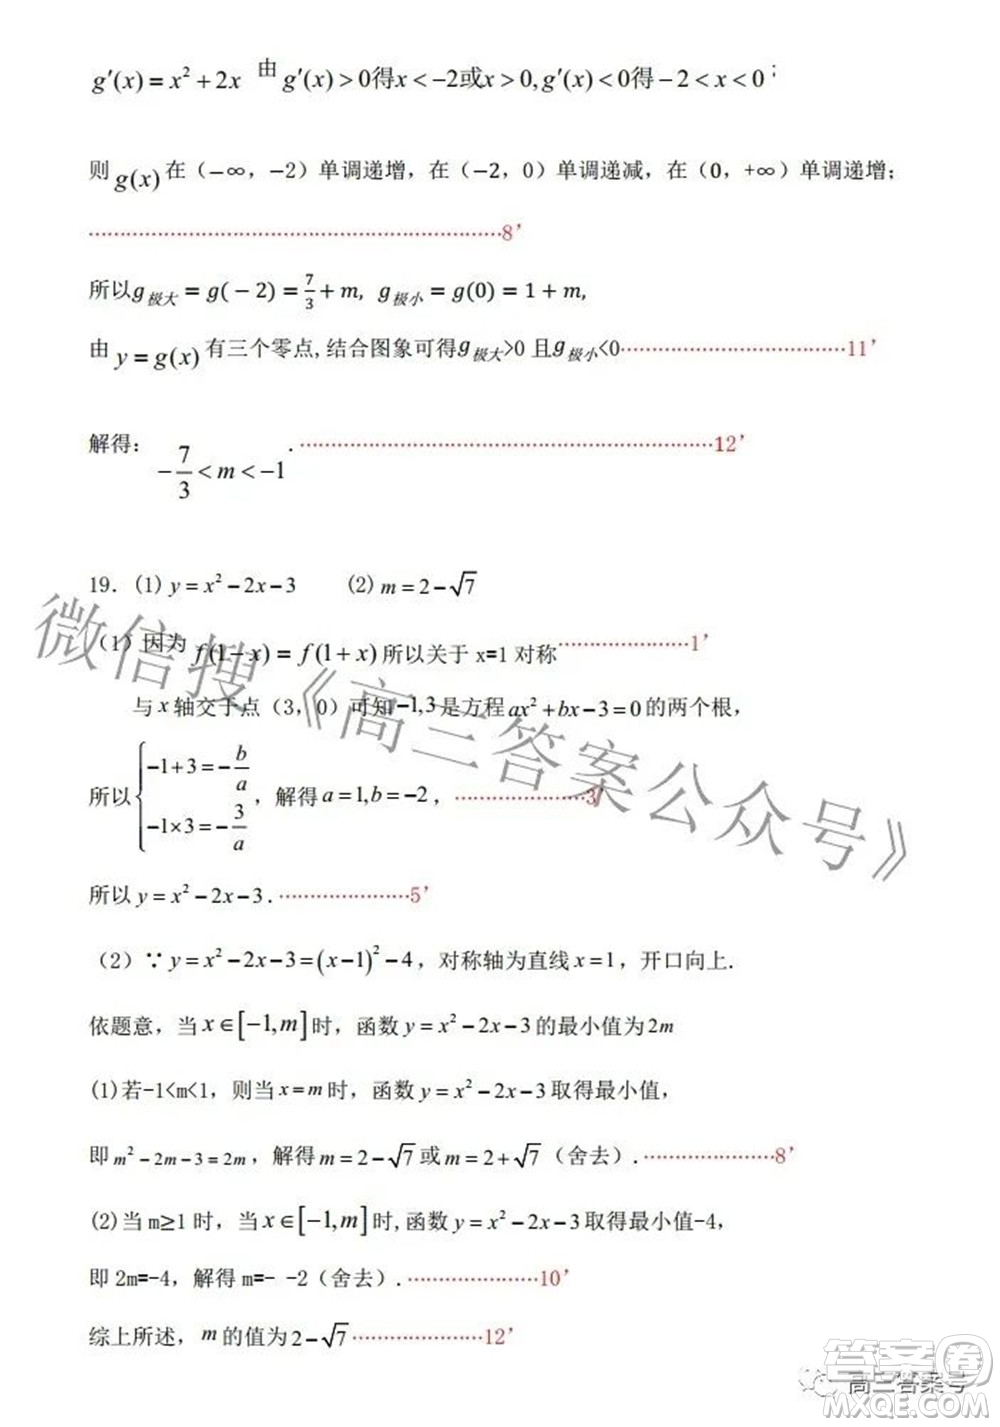 g′(x) = x² + 2x 由 g′(x) > 0得x < −2或x > 0, g′(x) < 0得 − 2 < x < 0 ;
则 g(x) 在（−∞，−2）单调递增，在（−2，0）单调递减，在（0，+∞）单调递增；
……………………………………………………………8’
所以g极大 = g(−2) = 7/3 + m, g极小 = g(0) = 1 + m,
由 y = g(x) 有三个零点,结合图象可得g极大>0 且g极小<0………………………………11’
解得: −7/3 < m < −1 . …………………………………………………………12’
19. (1) y = x² − 2x − 3 (2) m = 2 − √7
（1）因为 f(1 − x) = f(1 + x) 所以关于 x=1 对称…………………1’
与 x 轴交于点（3，0）可知 −1,3 是方程 ax² + bx − 3 = 0 的两个根，
所以 { −1 + 3 = −b/a −1×3 = −3/a ，解得 a = 1, b = −2 ，…………………3’
所以 y = x² − 2x − 3 . …………………5’
（2）∵ y = x² − 2x − 3 = (x − 1)² − 4，对称轴为直线 x = 1，开口向上.
依题意，当 x ∈ [−1, m] 时，函数 y = x² − 2x − 3 的最小值为 2m
(1)若-1<m<1，则当 x = m 时，函数 y = x² − 2x − 3 取得最小值，
即 m² − 2m − 3 = 2m ，解得 m = 2 − √7 或 m = 2 + √7（舍去）. …………………8’
(2)当 m≥1 时，当 x ∈ [−1, m] 时,函数 y = x² − 2x − 3 取得最小值-4，
即 2m=-4，解得 m=- -2（舍去）. …………………10’
综上所述， m 的值为 2 − √7 …………………12’
微信搜《高三答案公众号》
高三答案号
答案圈
MXQE.COM